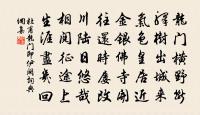 龍門橫野斷
驛樹出城來
氣色皇居近
金銀佛寺開
往還時屢改
川陸日悠哉
相閱征途上
生涯盡幾回
杜甫龍門即伊闕詞典
網集